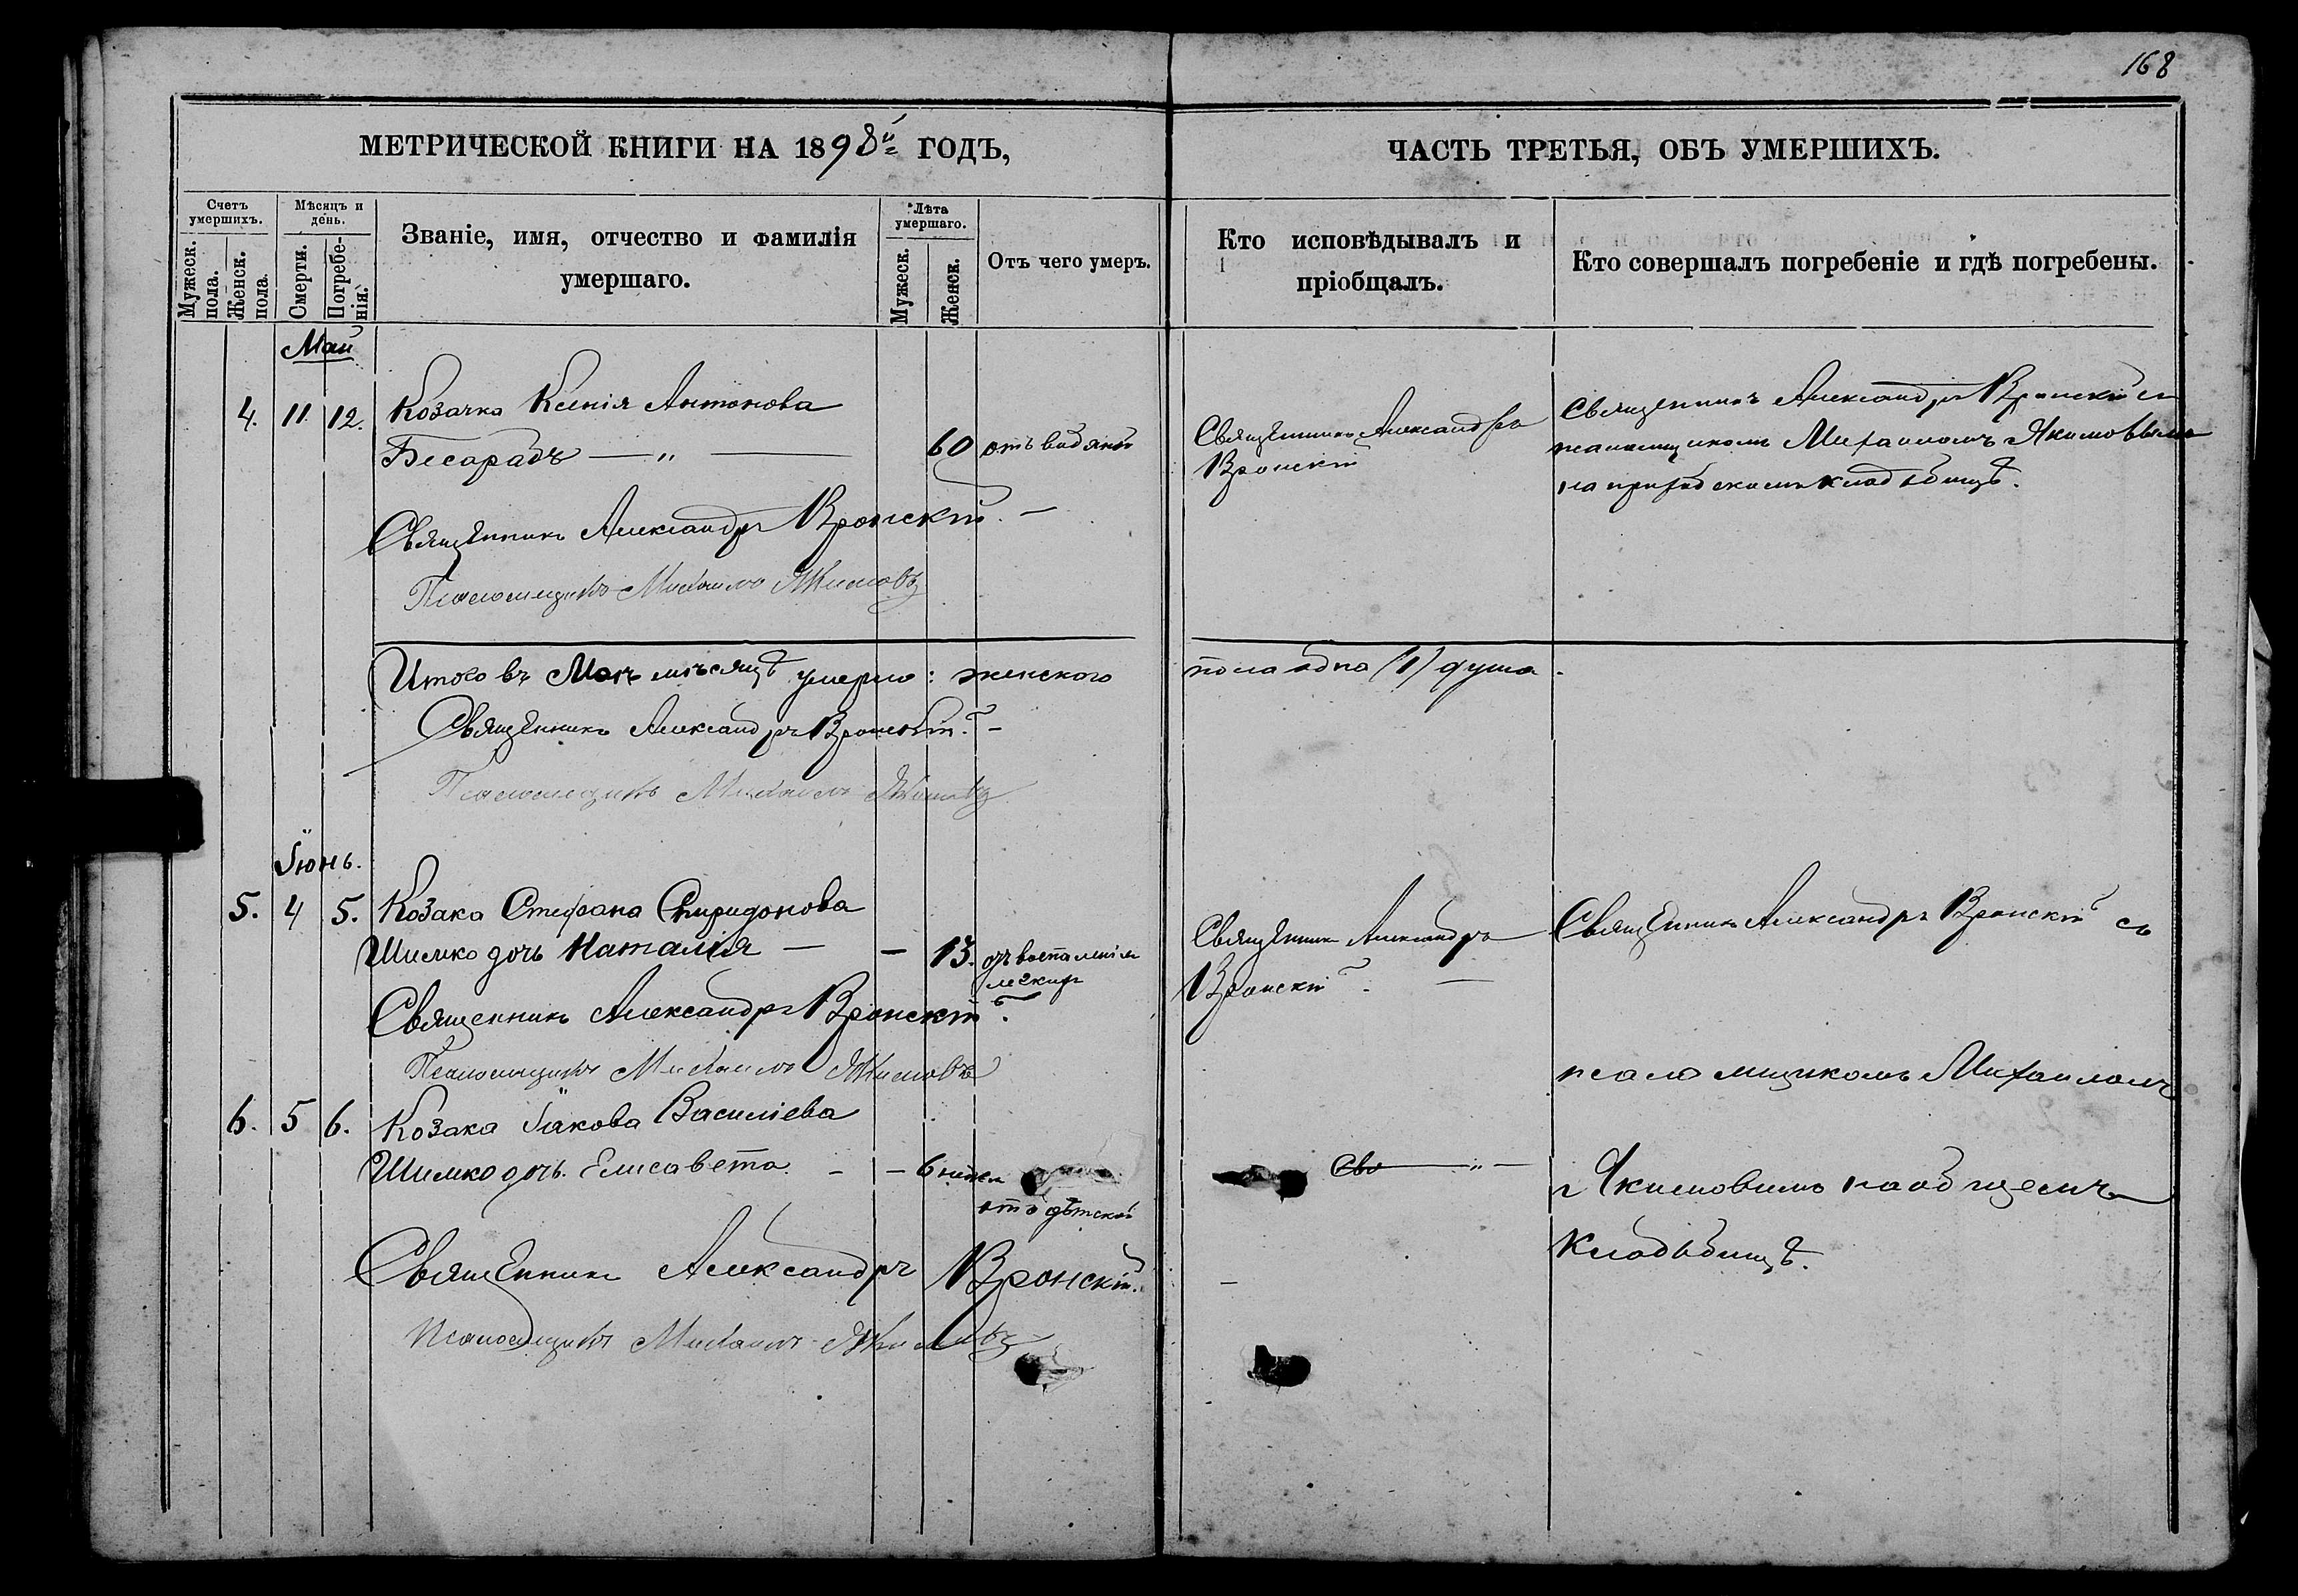 168
МЕТРИЧЕСКОЙ КНИГИ НА 1898й ГОДЪ,
ЧАСТЬ ТРЕТЬЯ, ОБЪ УМЕРШИХЪ.
Счетъ умершихъ.
Мужеск. пола.
Женск. пола.
Мѣсяцъ и день.
Смерти.
Погребенія.
Званіе, имя, отчество и фамилія
умершаго.
Лѣта умершаго.
Мужеск.
Женск.
Отъ чего умеръ.
Кто исповѣдывалъ и
пріобщалъ.
Кто совершалъ погребеніе и гдѣ погребены.
Май
4. 11. 12. Козачка Ксенія Антонова
Бесарабъ — " — 60 отъ водянки
Священникъ Александръ Вронскій. —
Псаломщикъ Михаилъ Якимовъ
Священникъ Александръ
Вронскій
Священникъ Александръ Вронскій съ
псаломщикомъ Михаиломъ Якимовымъ
на приходскомъ кладбищѣ.
Итого въ Маѣ мѣсяцѣ умерло: женского
пола одна (1) душа.
Священникъ Александръ Вронскій. —
Псаломщикъ Михаилъ Якимовъ
Іюнь.
5. 4 5. Козака Стефана Спиридонова
Шимко дочь Наталія — — 13. отъ воспаленія
легкихъ
Священникъ Александръ Вронскій.
Псаломщикъ Михаилъ Якимовъ
Священникъ Александръ
Вронскій. —
Священникъ Александръ Вронскій съ
псаломщикомъ Михаиломъ
Якимовимъ на общемъ
кладбищѣ.
6. 5 6. Козака Іакова Василіева
Шимко дочь Елисавета. — — 6 недел
отъ дѣтской
Сво — " —
Священникъ Александръ Вронскій.
Псаломщикъ Михаилъ Якимовъ